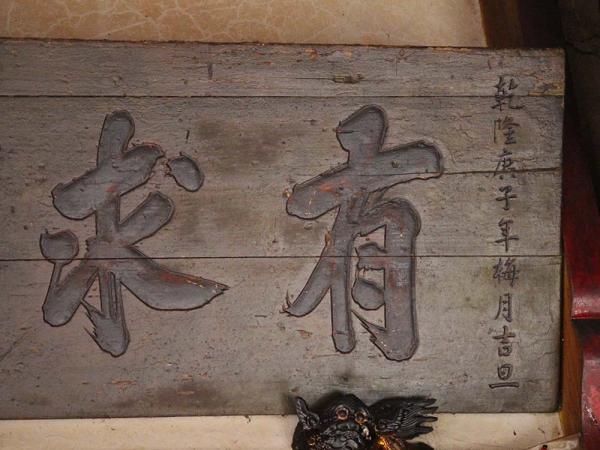 乾隆庚子年梅月吉旦
有求